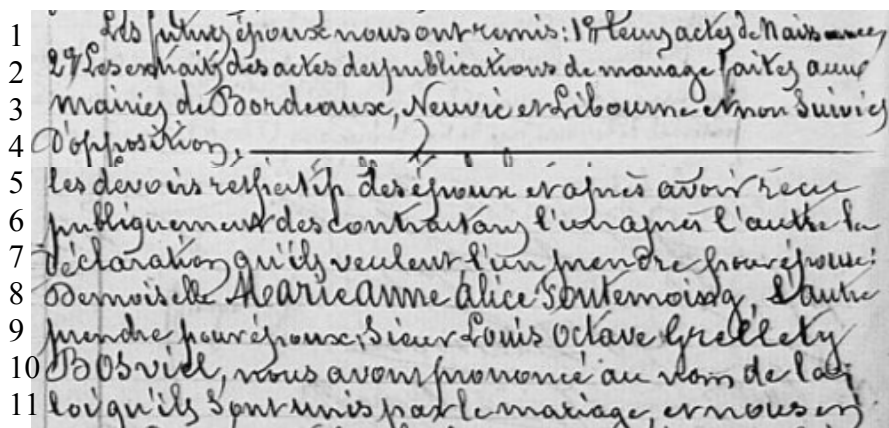 1 Les futurs époux nous ont remis : 1º leurs actes de Naissance,
2 2º Les extraits des actes des publications de mariage faites aux
3 mairies de Bordeaux, Neuvic et Libourne et non Suivies
4 d'opposition,
5 les devoirs respectifs des époux et après avoir reçu
6 publiquement des contractans l'un après l'autre la
7 déclaration qu'ils veulent l'un prendre pour épouse:
8 Demoiselle Marie Anne Alice Fontemoing, L'autre
9 prendre pour époux, Sieur Louis Octave Grellety
10 Bosviel, nous avons prononcé au nom de la
11 loi qu'ils sont unis par le mariage, et nous en